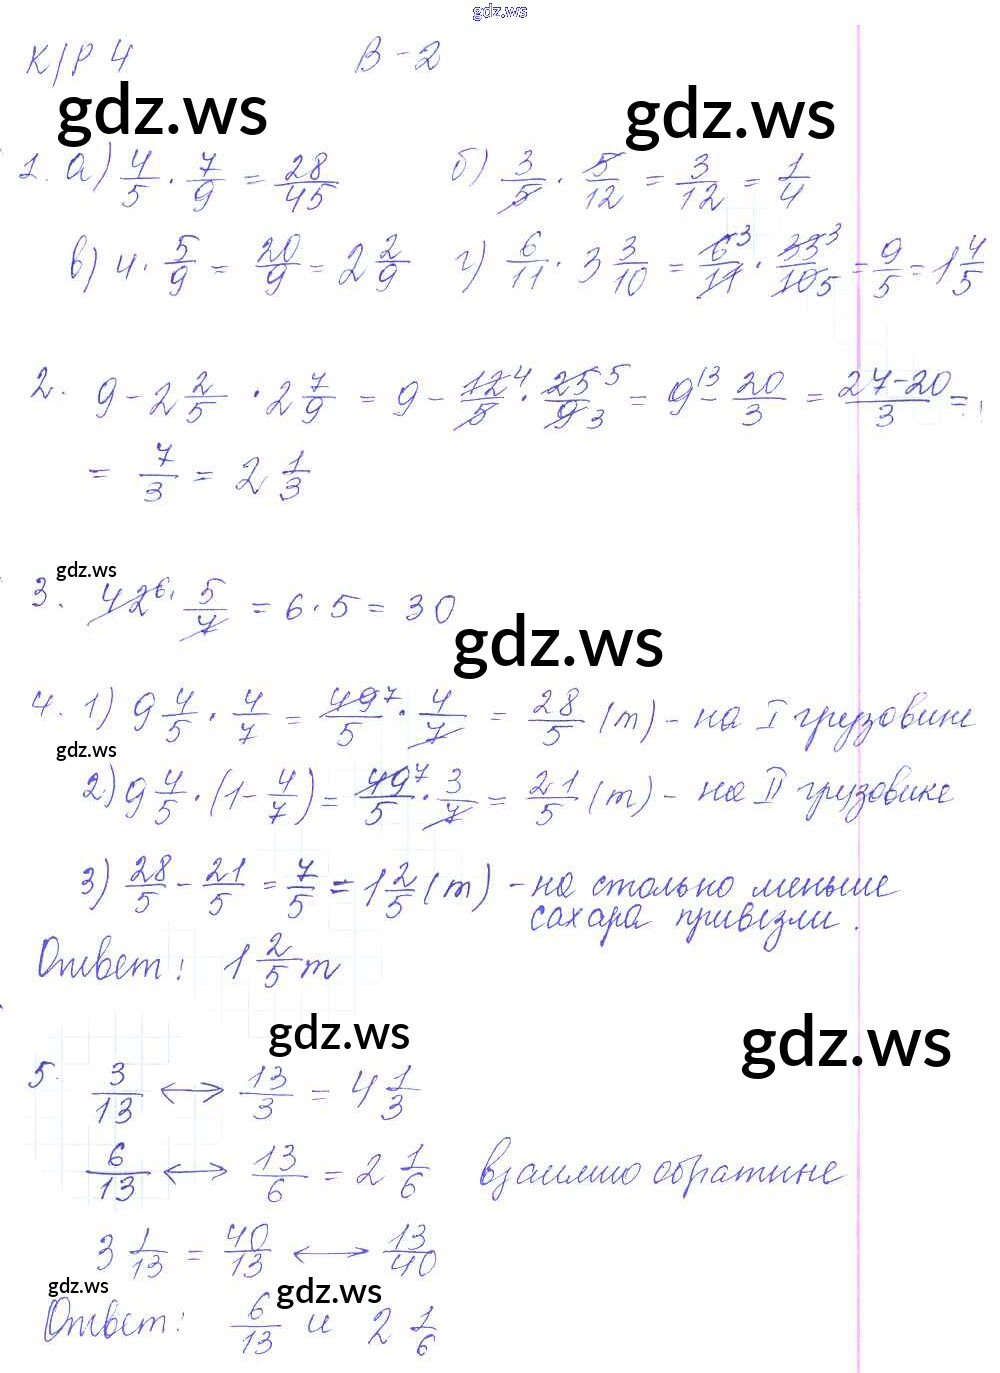 gdz.ws
К/Р 4 В-2
gdz.ws gdz.ws
1. а) 4/5 · 7/9 = 28/45 б) 3/5 · 5/12 = 3/12 = 1/4
в) 4 · 5/9 = 20/9 = 2 2/9 г) 6/11 · 3 3/10 = 6³/11 · 33³/10 5 = 9/5 = 1 4/5
2. 9 - 2 2/5 · 2 7/9 = 9 - 12⁴/5 · 25⁵/9 3 = 9⁽³ - 20/3 = 27-20/3 =
= 7/3 = 2 1/3
gdz.ws
3. 42⁶ · 5/7 = 6 · 5 = 30
gdz.ws
4. 1) 9 4/5 · 4/7 = 49⁷/5 · 4/7 = 28/5 (т) - на I грузовике
gdz.ws
2) 9 4/5 · (1 - 4/7) = 49⁷/5 · 3/7 = 21/5 (т) - на II грузовике
3) 28/5 - 21/5 = 7/5 = 1 2/5 (т) - на столько меньше
сахара привезли.
Ответ: 1 2/5 т
gdz.ws gdz.ws
5. 3/13 ↔ 13/3 = 4 1/3
6/13 ↔ 13/6 = 2 1/6 взаимно обратные
3 1/13 = 40/13 ↔ 13/40
gdz.ws gdz.ws
Ответ: 6/13 и 2 1/6